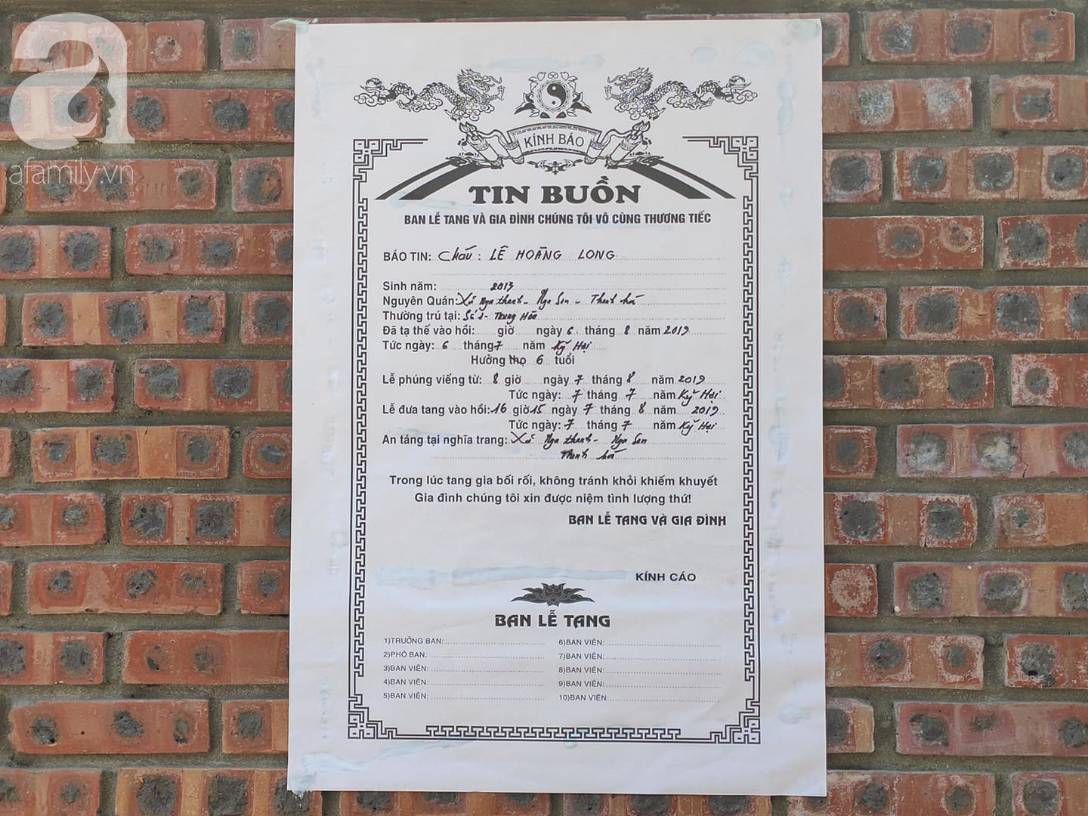 a
afamily.vn
KÍNH BÁO
TIN BUỒN
BAN LỄ TANG VÀ GIA ĐÌNH CHÚNG TÔI VÔ CÙNG THƯƠNG TIẾC
BÁO TIN: Cháu: LÊ HOÀNG LONG
Sinh năm: 2013
Nguyên Quán: Xã Nga thanh - Nga Sơn - Thanh hóa
Thường trú tại: Trung Hòa
Đã tạ thế vào hồi: giờ ngày 6 tháng 8 năm 2019
Tức ngày: 6 tháng 7 năm Kỷ Hợi
Hưởng thọ 6 tuổi
Lễ phúng viếng từ: 8 giờ ngày 7 tháng 8 năm 2019
Tức ngày: 7 tháng 7 năm Kỷ Hợi
Lễ đưa tang vào hồi: 16 giờ 15 ngày 7 tháng 8 năm 2019
Tức ngày: 7 tháng 7 năm Kỷ Hợi
An táng tại nghĩa trang: Xã Nga thanh - Nga Sơn
Thanh hóa
Trong lúc tang gia bối rối, không tránh khỏi khiếm khuyết
Gia đình chúng tôi xin được niệm tình lượng thứ!
BAN LỄ TANG VÀ GIA ĐÌNH
KÍNH CÁO
BAN LỄ TANG
1)TRƯỞNG BAN:
2)PHÓ BAN.
3)BAN VIÊN:
4)BAN VIÊN:
5)BAN VIÊN:
6)BAN VIÊN:
7)BAN VIÊN:
8)BAN VIÊN:
9)BAN VIÊN:
10)BAN VIÊN: